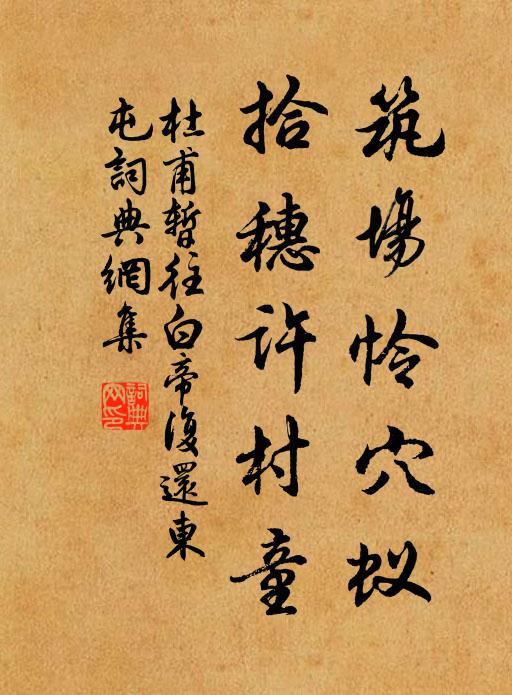 筑場怜穴蚁
拾穗许村童
杜甫暫往白帝復還東
屯詞典網集
詞典网印